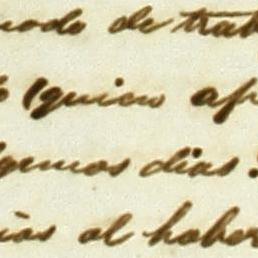 modo de trab
(quien ap
genios dias.
ias al haber